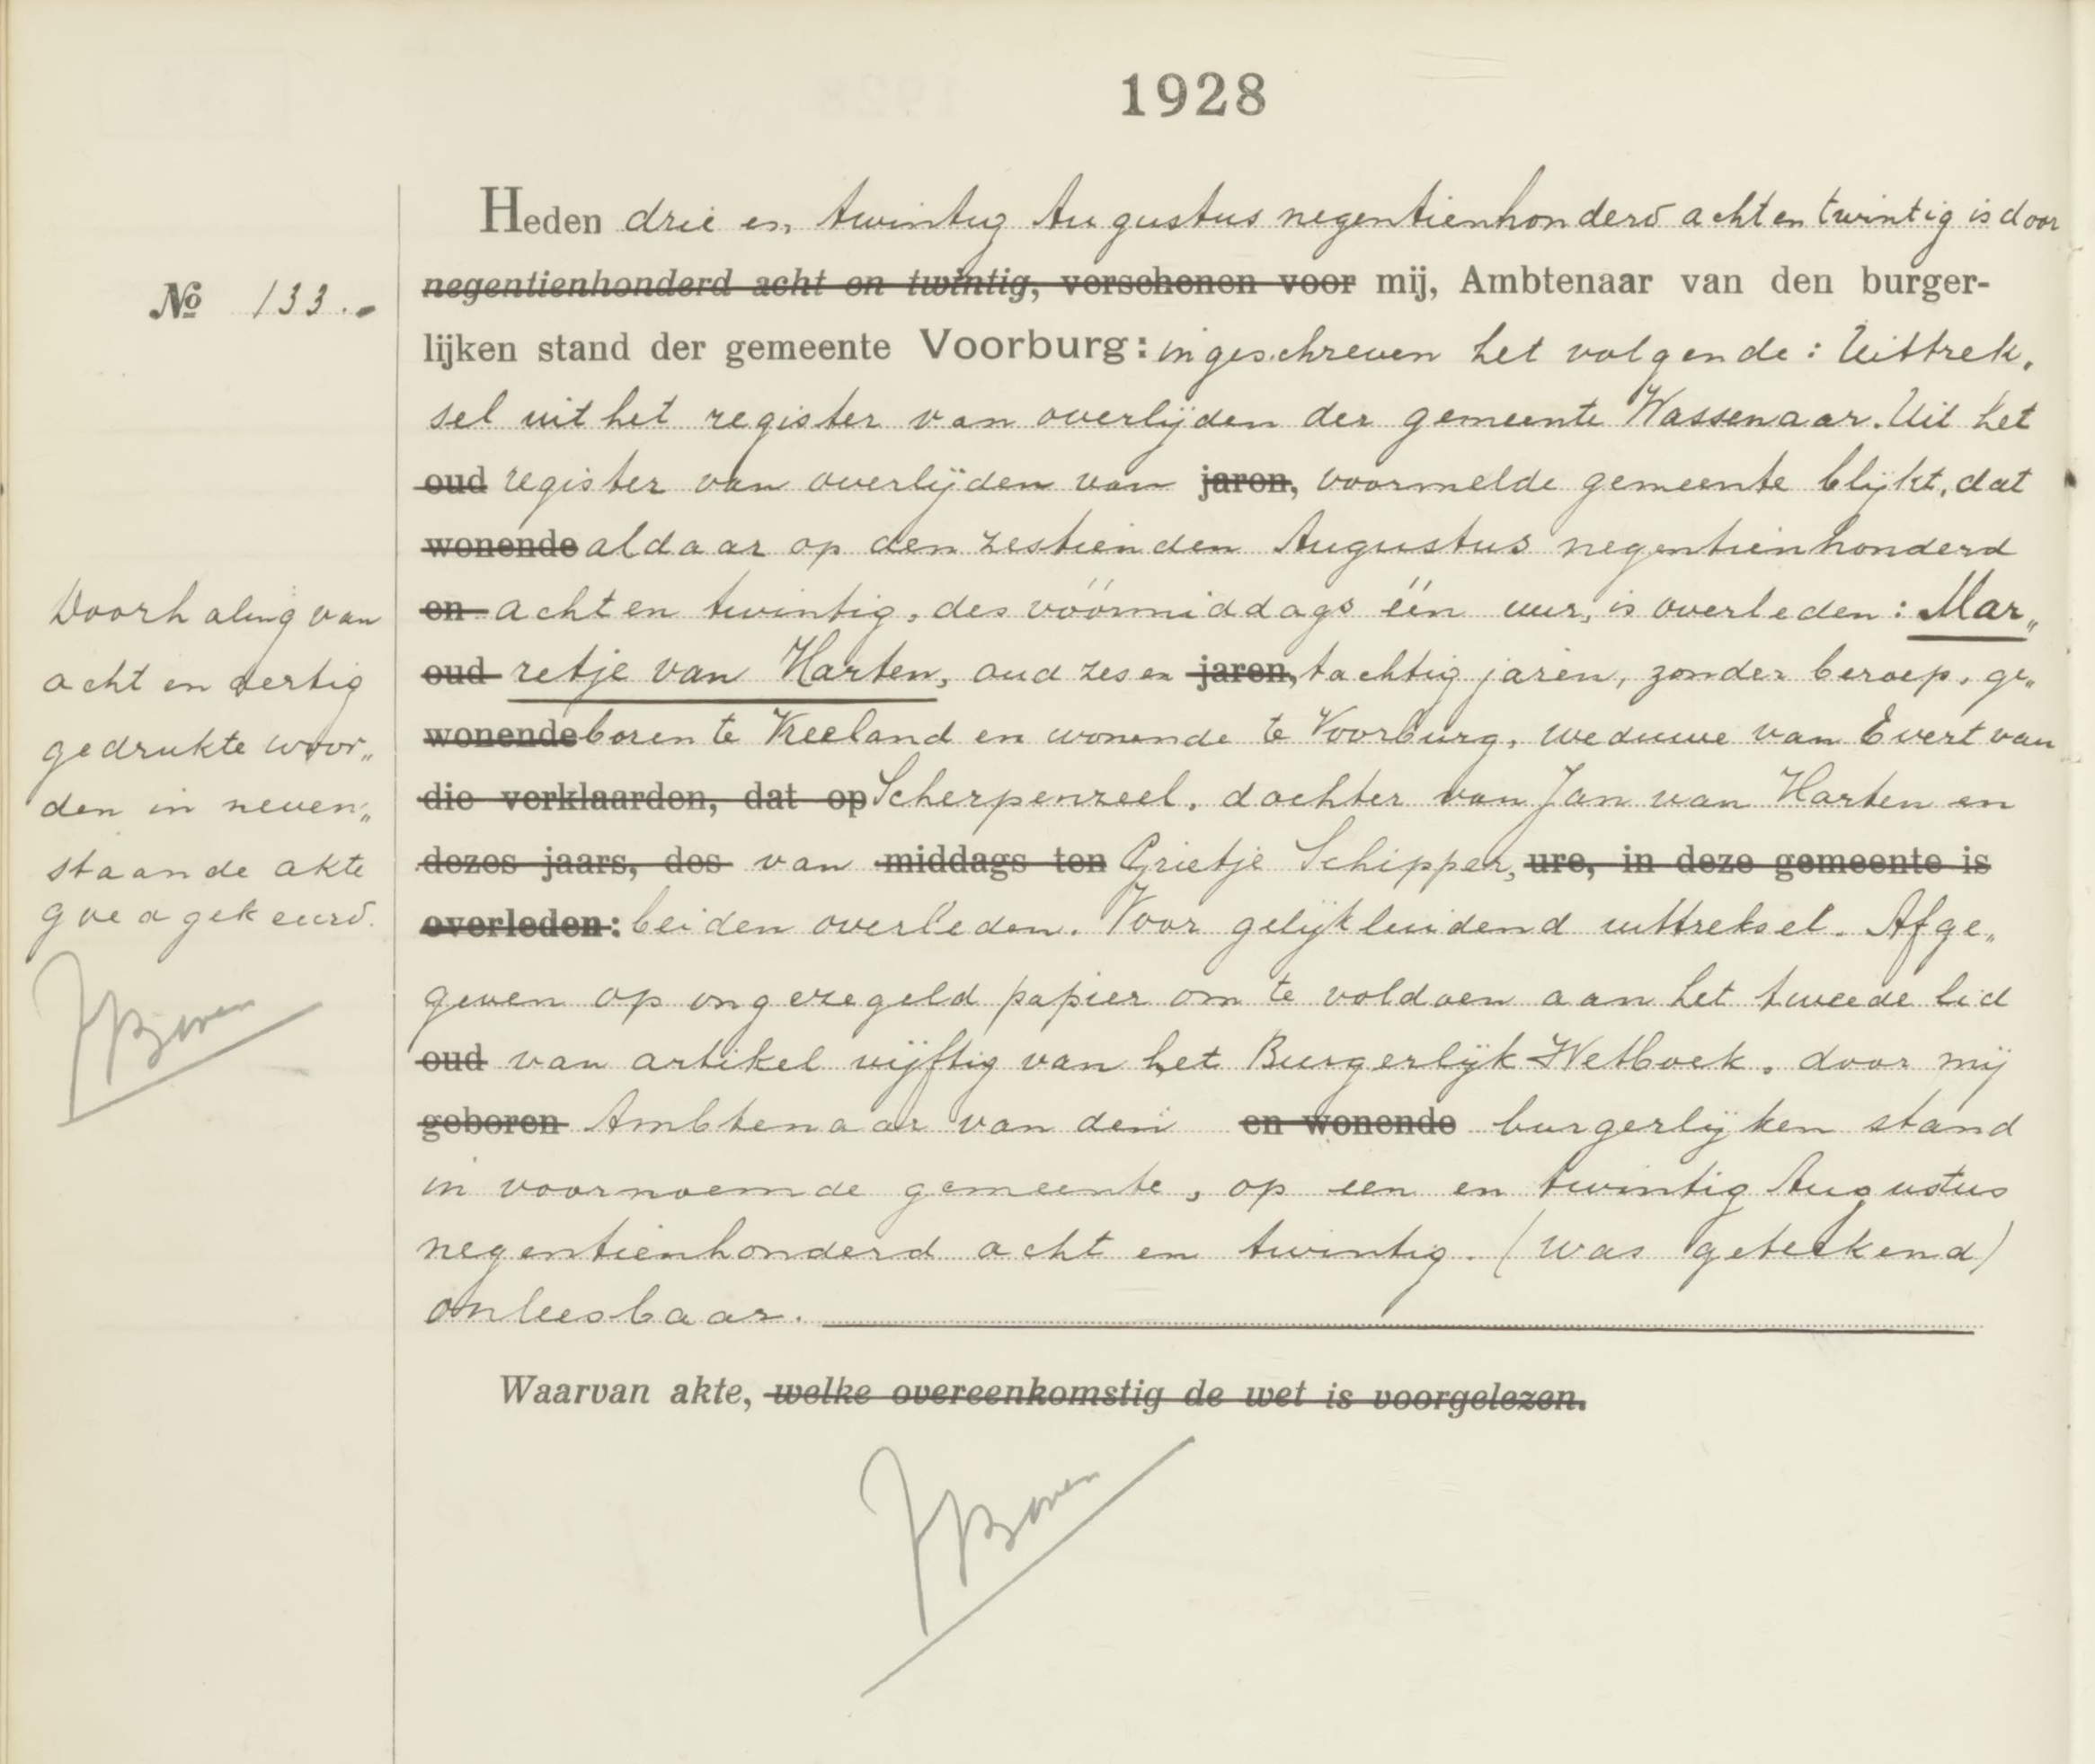 1928
Heden drie en twintig Augustus negentienhonderd acht en twintig is door
No 133.-
negentienhonderd acht en twintig, verschenen voor mij, Ambtenaar van den burger-
lijken stand der gemeente Voorburg: ingeschreven het volgende: Uittrek„
sel uit het register van overlijden der gemeente Wassenaar. Uit het
oud register van overlijden van jaren, voormelde gemeente blijkt, dat
wonende aldaar op den zestienden Augustus negentienhonderd
en acht en twintig, des vóórmiddags één uur, is overleden: Mar„
oud retje van Harten, oud zes en jaren, tachtig jaren, zonder beroep, ge„
wonende boren te Vreeland en wonende te Voorburg, weduwe van Evert van
die verklaarden, dat op Scherpenzeel, dochter van Jan van Harten en
dezes jaars, des van middags ten Grietje Schipper, ure, in deze gemeente is
overleden: beiden overleden. Voor gelijkluidend uittreksel. Afge„
geven op ongezegeld papier om te voldoen aan het tweede lid
oud van artikel vijftig van het Burgerlijk Wetboek, door mij
geboren Ambtenaar van den en wonende burgerlijken stand
in voornoemde gemeente, op een en twintig Augustus
negentienhonderd acht en twintig. (was geteekend)
onleesbaar.
Waarvan akte, welke overeenkomstig de wet is voorgelezen.
Doorhaling van
acht en dertig
gedrukte woor„
den in neven„
staande akte
goedgekeurd.